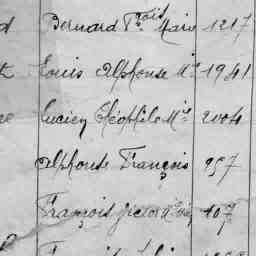 d Bernard Fçois Marie 1217
Louis Alphonse Mie 1941
Lucien Théophile Mie 2004
Alphonse François 957
François Victor Mie 107